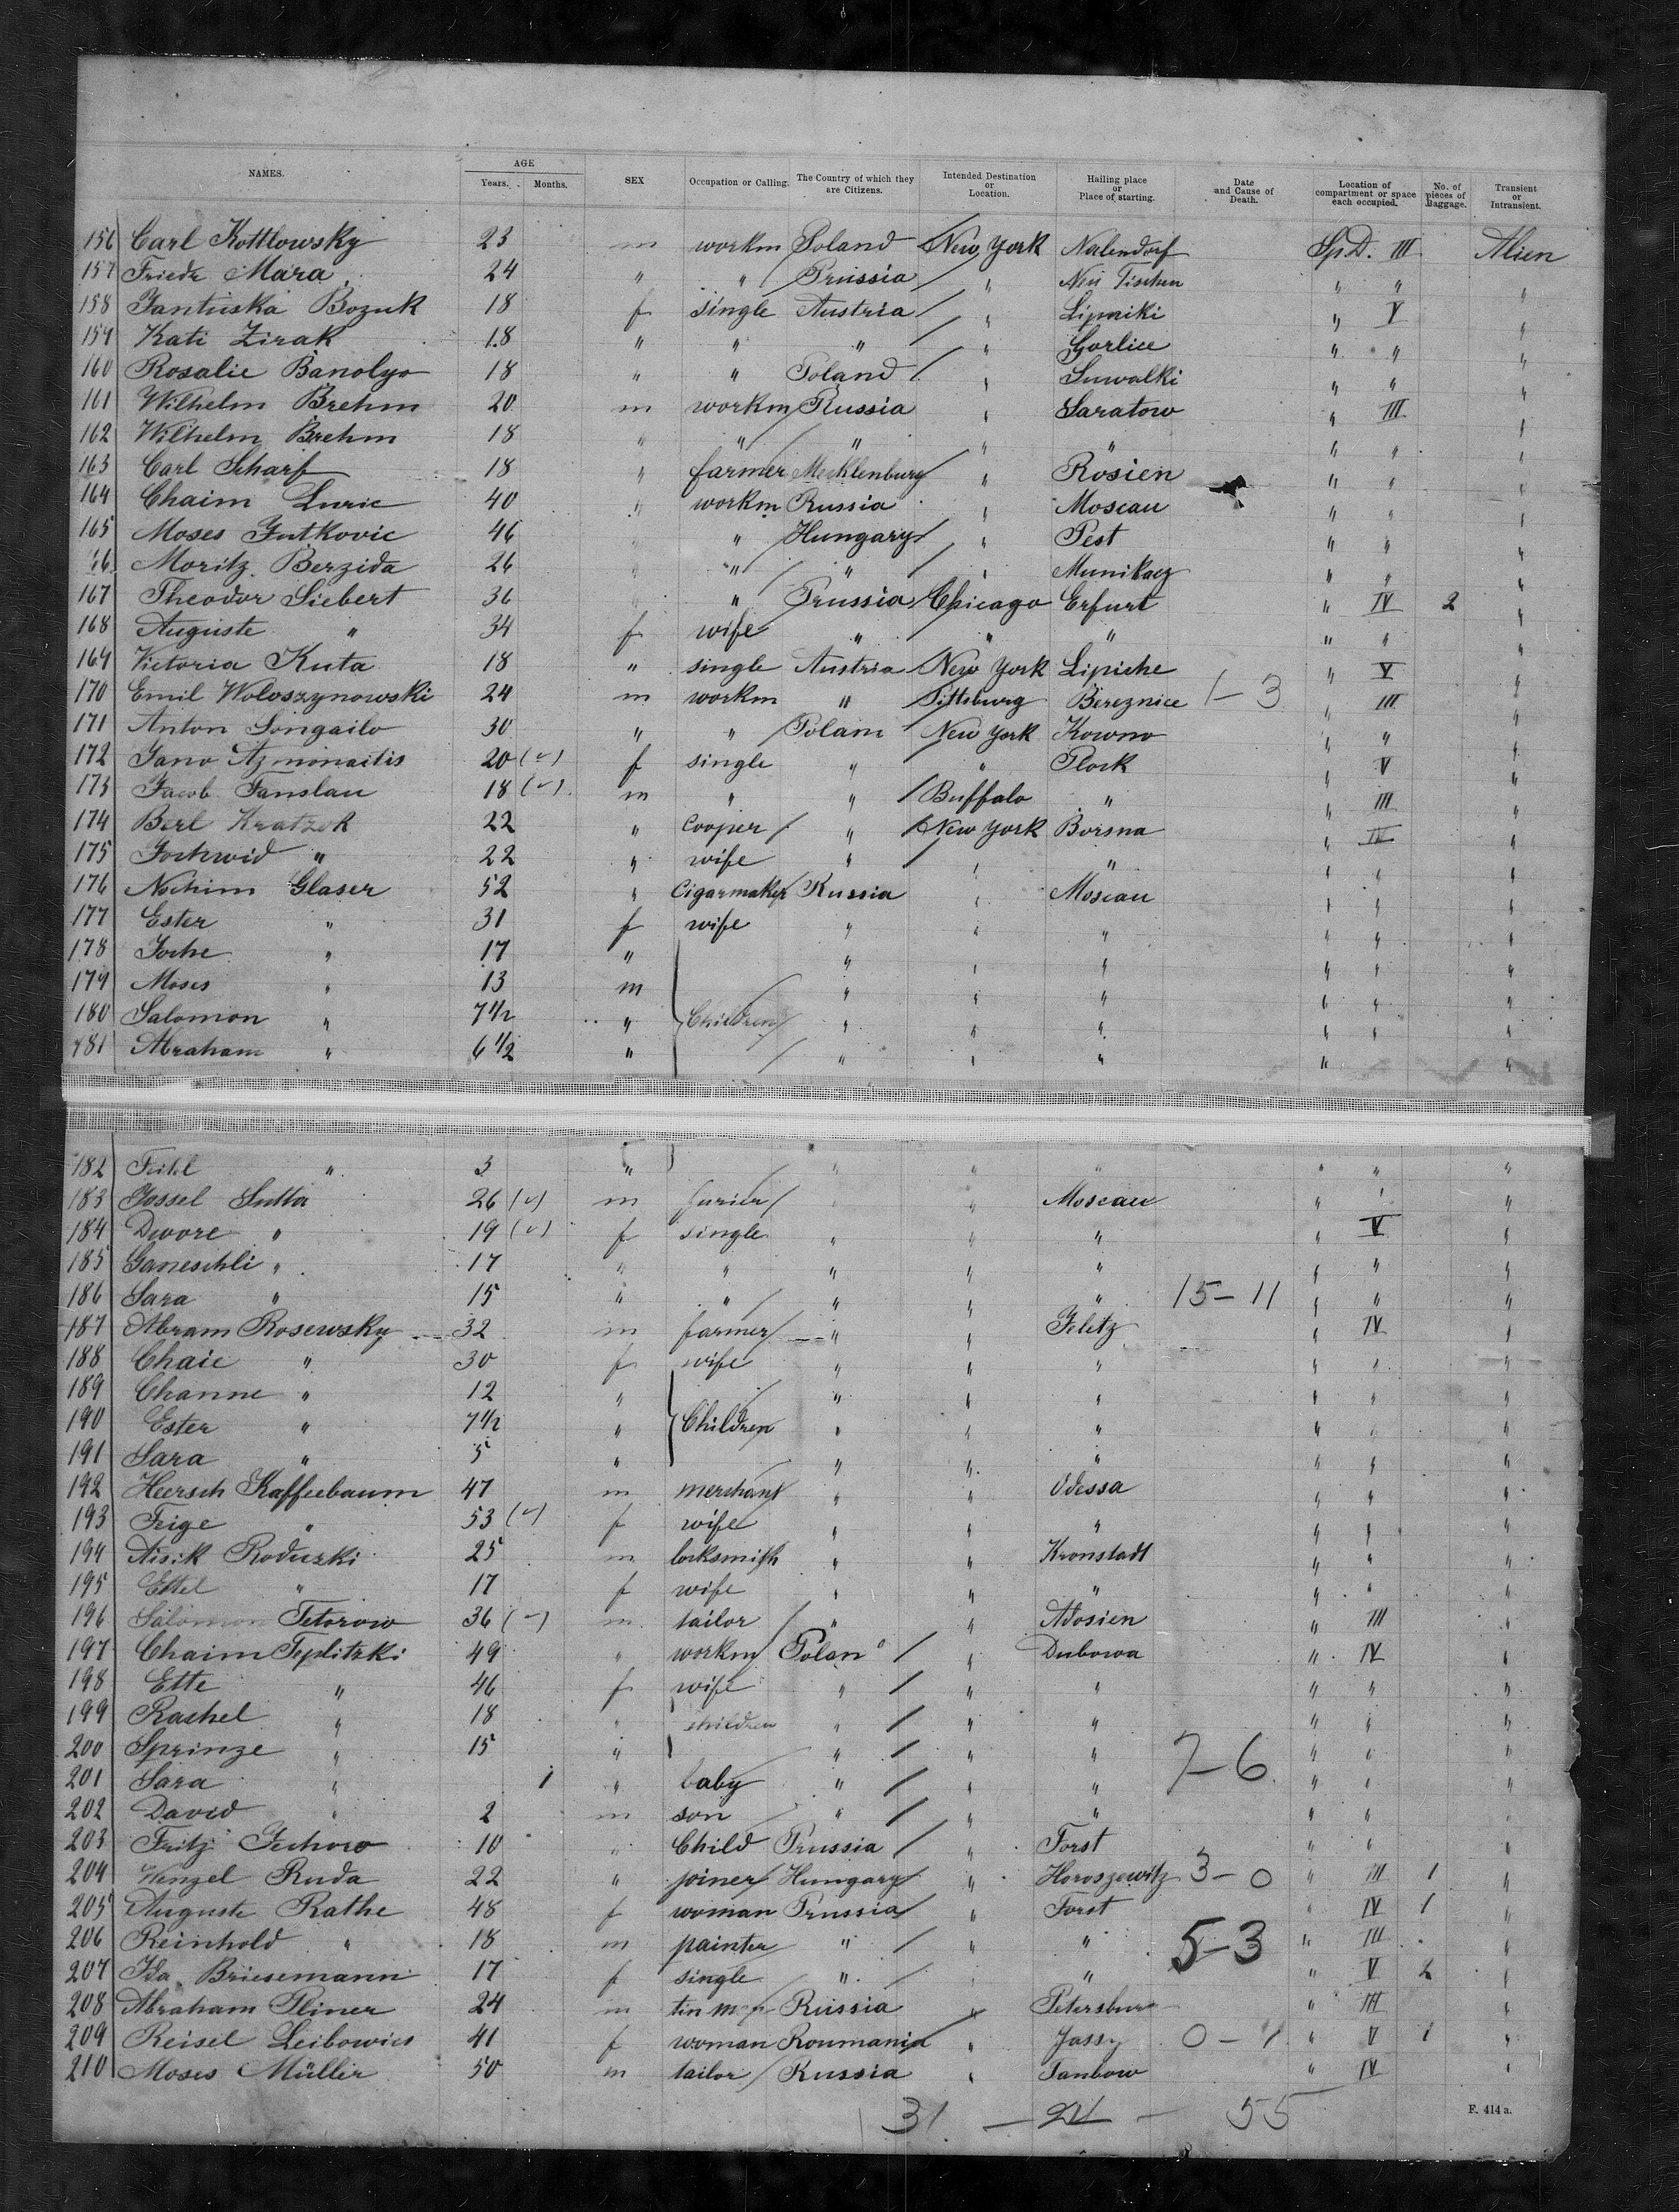 NAMES. AGE Years. Months. SEX Occupation or Calling. The Country of which they are Citizens. Intended Destination or Location. Hailing place or Place of starting. Date and Cause of Death. Location of compartment or space each occupied. No. of pieces of Baggage. Transient or Intransient.
156 Carl Kottlowsky 23 m workm Poland New York Nalendorf Sp.D. III Alien
157 Friedr Mara 24 " " Prussia " Neu Tischen " " "
158 Jantuska Bozuk 18 f single Austria " Lipniki " V "
159 Kati Zirak 18 " " " " Gorlice " " "
160 Rosalie Banolyo 18 " " Poland " Suwalki " " "
161 Wilhelm Brehm 20 m workm Russia " Saratow " III "
162 Wilhelm Brehm 18 " " " " " " " "
163 Carl Scharf 18 " farmer Mecklenburg " Rosien " " "
164 Chaim Luric 40 " workm Russia " Moscau " " "
165 Moses Jutkovic 46 " " Hungary " Pest " " "
166 Moritz Berzida 26 " " " " Munikacz " " "
167 Theodor Siebert 36 " " Prussia Chicago Erfurt " IV 2 "
168 Auguste " 34 f wife " " " " " "
169 Victoria Kuta 18 " single Austria New York Lipiche " V "
170 Emil Woloszynowski 24 m workm " Pittsburg Bereznice 1-3 " III "
171 Anton Songailo 30 " " Polani New York Kowno " " "
172 Jano Azmonaitis 20 (v) f single " " Plock " V "
173 Jacob Fanslau 18 (v) m " " Buffalo " " III "
174 Berl Kratzok 22 " cooper " New York Borsna " IV "
175 Jochwid " 22 " wife " " " " " "
176 Nochim Glaser 52 " Cigarmaker Russia " Moscau " " "
177 Ester " 31 f wife " " " " " "
178 Joche " 17 " " " " " " "
179 Moses " 13 m " " " " " "
180 Salomon " 7 1/2 " Children " " " " " "
181 Abraham " 6 1/2 " " " " " "
182 Feihl " 3 " " " " " " "
183 Jossel Sutta 26 (v) m furier " " Moscau " " "
184 Dwore " 19 (v) f single " " " " V "
185 Ganeschli " 17 " " " " " " " "
186 Sara " 15 " " " " " 15-11 " " "
187 Abram Rosewsky 32 m farmer " " Jeletz " IV "
188 Chaie " 30 f wife " " " " " "
189 Channe " 12 " " " " " " "
190 Ester " 7 1/2 " Children " " " " " "
191 Sara " 5 " " " " " " "
192 Heersch Kaffeebaum 47 m merchant " " Odessa " " "
193 Feige " 53 (v) f wife " " " " " "
194 Aisik Roduzki 25 m locksmith " " Kronstadt " " "
195 Ettel " 17 f wife " " " " " "
196 Salomon Tetorow 36 (v) m tailor " " Adosien " III "
197 Chaim Teplitzki 49 " workm Polan " Dubowa " IV "
198 Ette " 46 f wife " " " " " "
199 Rachel " 18 " children " " " " " "
200 Sprinze " 15 " " " " " " "
201 Sara " 1 " baby " " " 7-6 " " "
202 David " 2 m son " " " " " "
203 Fritz Jechow 10 " Child Prussia " Forst " " "
204 Wenzel Ruda 22 " joiner Hungary " Horoszewitz 3-0 " III 1 "
205 Auguste Rathe 48 f woman Prussia " Forst " IV 1 "
206 Reinhold " 18 m painter " " " 5-3 " III "
207 Ida Briesemann 17 f single " " " " V 2 "
208 Abraham Pliner 24 m tin man Russia " Petersburg " III "
209 Reisel Leibowics 41 f woman Roumania " Jassy 0-1 " V 1 "
210 Moses Müller 50 m tailor Russia " Tanbow " IV "
31 - 24 - 55
F. 414 a.